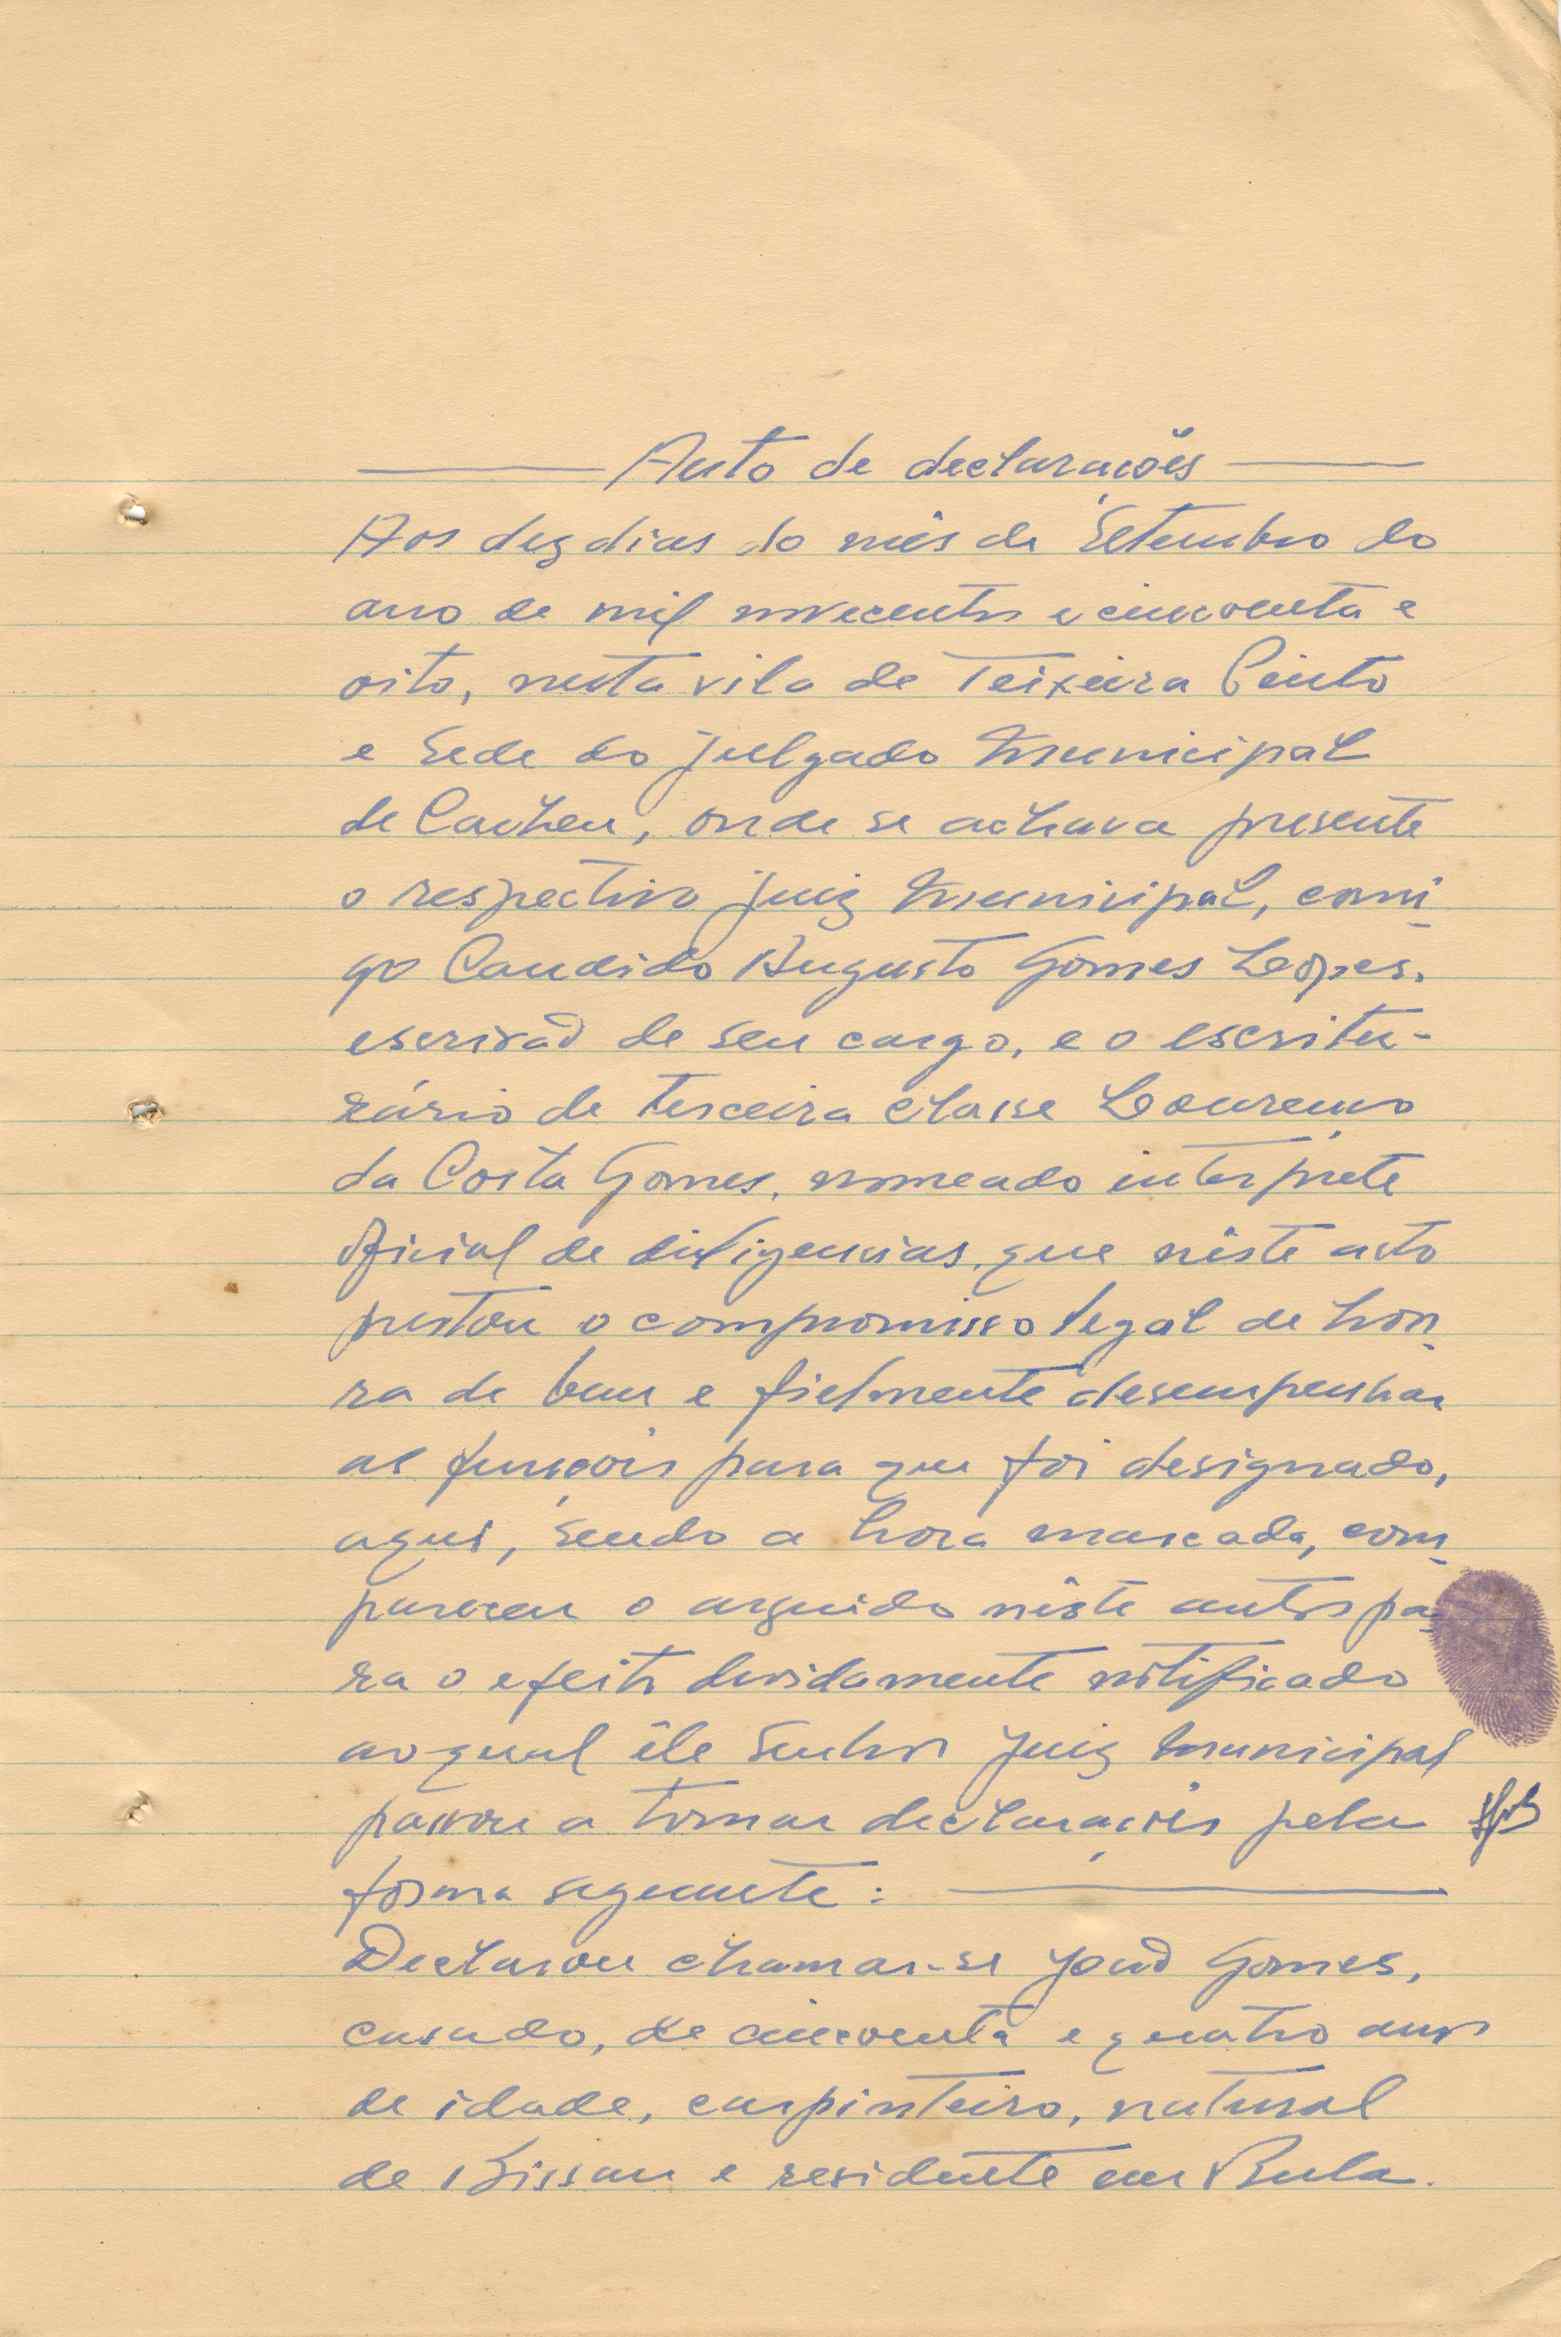 Auto de declarações
Aos dez dias do mês de Setembro do
ano de mil novecentos e cincoenta e
oito, nesta vila de Teixeira Pinto
e Sede do Julgado Municipal
de Cacheu, onde se achava presente
o respectivo juiz Municipal, comi-
go Candido Augusto Gomes Lopes,
escrivão de seu cargo, e o escritu-
rário de terceira classe Lourenço
da Costa Gomes, nomeado interprete
oficial de diligencias, que nêste acto
prestou o compromisso legal de hon-
ra de bem e fielmente desempenhar
as funções para que foi designado,
aqui, sendo a hora marcada, com-
pareceu o arguido nêste autos pa-
ra o efeito devidamente notificado
ao qual êle Senhor Juiz Municipal
passou a tomar declarações pela
forma seguente:
Declarou chamar-se João Gomes,
casado, de cincoenta e quatro anos
de idade, carpinteiro, natural
de Bissau e residente em Bula.